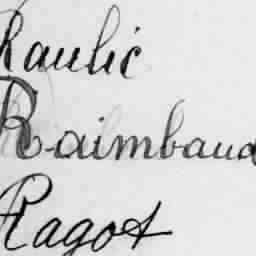 Raulic
Raimbaud
Ragot